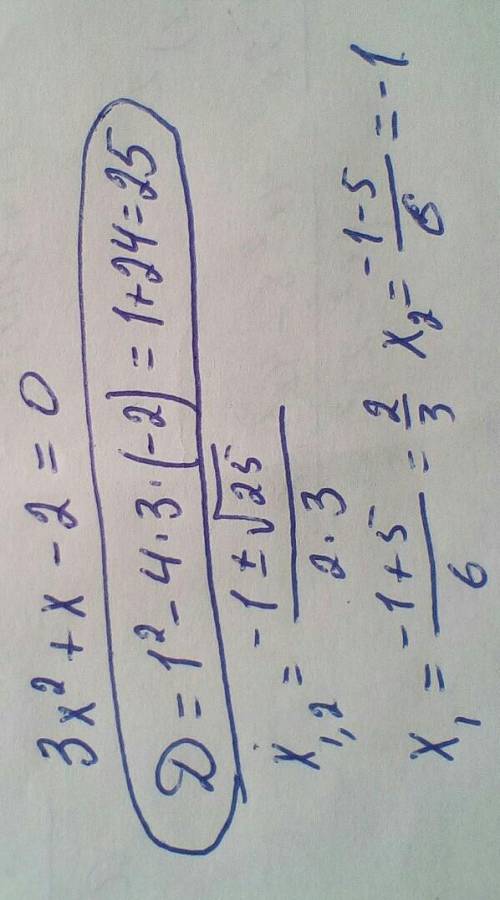 3x² + x - 2 = 0
D = 1² - 4·3·(-2) = 1+24=25
x₁,₂ = (-1 ± √25)/(2·3)
x₁ = (-1+5)/6 = 2/3 x₂ = (-1-5)/6 = -1